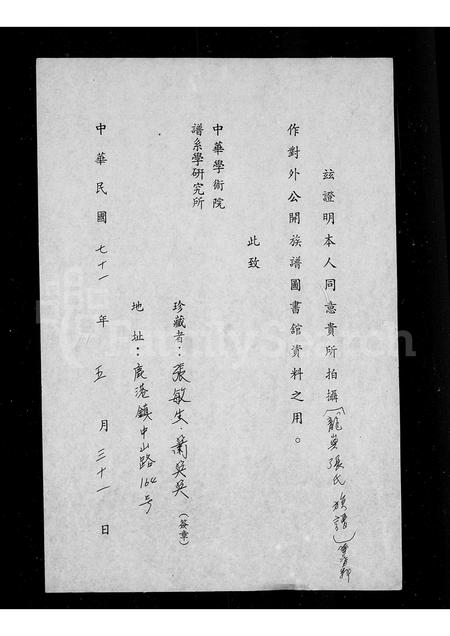 玆證明本人同意貴所拍攝(龍崗張氏族譜)
作對外公開族譜圖書館資料之用。
此致
中華學術院
譜系學研究所
珍藏者：張敏生．蕭吳吳（簽章）
地址：鹿港鎮中山路164号
中華民國七十一年五月三十一日
FamilySearch